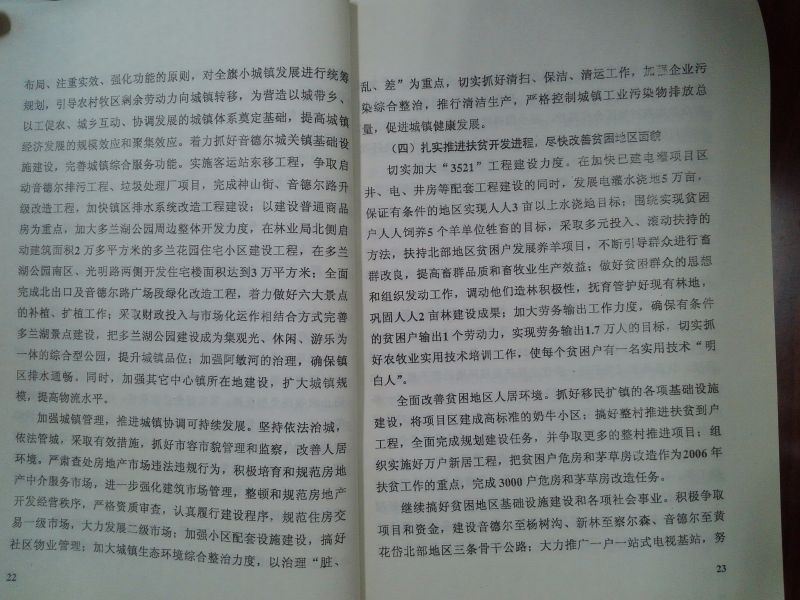 布局、注重实效、强化功能的原则，对全旗小城镇发展进行统筹
规划，引导农村牧区剩余劳动力向城镇转移，为营造以城带乡、
以工促农、城乡互动、协调发展的城镇体系奠定基础，提高城镇
经济发展的规模效应和聚集效应。着力抓好音德尔城关镇基础设
施建设，完善城镇综合服务功能。实施客运站东移工程，争取启
动音德尔排污工程、垃圾处理厂项目，完成神山街、音德尔路升
级改造工程，加快镇区排水系统改造工程建设；以建设普通商品
房为重点，加大多兰湖公园周边整体开发力度，在林业局北侧启
动建筑面积2万多平方米的多兰花园住宅小区建设工程，在多兰
湖公园南区、光明路两侧开发住宅楼面积达到3万平方米；全面
完成北出口及音德尔路广场段绿化改造工程，着力做好六大景点
的补植、扩植工作；采取财政投入与市场化运作相结合方式完善
多兰湖景点建设，把多兰湖公园建设成为集观光、休闲、游乐为
一体的综合型公园，提升城镇品位；加强阿敏河的治理，确保镇
区排水通畅。同时，加强其它中心镇所在地建设，扩大城镇规
模，提高物流水平。
加强城镇管理，推进城镇协调可持续发展。坚持依法治城，
依法管城，采取有效措施，抓好市容市貌管理和监察，改善人居
环境。严肃查处房地产市场违法违规行为，积极培育和规范房地
产中介服务市场，进一步强化建筑市场管理，整顿和规范房地产
开发经营秩序，严格资质审查，认真履行建设程序，规范住房交
易一级市场，大力发展二级市场；加强小区配套设施建设，搞好
社区物业管理；加大城镇生态环境综合整治力度，以治理“脏、
22
乱、差”为重点，切实抓好清扫、保洁、清运工作，加强企业污
染综合整治，推行清洁生产，严格控制城镇工业污染物排放总
量，促进城镇健康发展。
（四）扎实推进扶贫开发进程，尽快改善贫困地区面貌
切实加大“3521”工程建设力度。在加快已建电灌项目区
井、电、井房等配套工程建设的同时，发展电灌水浇地5万亩，
保证有条件的地区实现人人3亩以上水浇地目标；围绕实现贫困
户人人饲养5个羊单位牲畜的目标，采取多元投入、滚动扶持的
方法，扶持北部地区贫困户发展养羊项目，不断引导群众进行畜
群改良，提高畜群品质和畜牧业生产效益；做好贫困群众的思想
和组织发动工作，调动他们造林积极性，抚育管护好现有林地，
巩固人人2亩林建设成果；加大劳务输出工作力度，确保有条件
的贫困户输出1个劳动力，实现劳务输出1.7万人的目标，切实抓
好农牧业实用技术培训工作，使每个贫困户有一名实用技术“明
白人”。
全面改善贫困地区人居环境。抓好移民扩镇的各项基础设施
建设，将项目区建成高标准的奶牛小区；搞好整村推进扶贫到户
工程，全面完成规划建设任务，并争取更多的整村推进项目；组
织实施好万户新居工程，把贫困户危房和茅草房改造作为2006年
扶贫工作的重点，完成3000户危房和茅草房改造任务。
继续搞好贫困地区基础设施建设和各项社会事业。积极争取
项目和资金，建设音德尔至杨树沟、新林至察尔森、音德尔至黄
花岱北部地区三条骨干公路；大力推广一户一站式电视基站，努
23